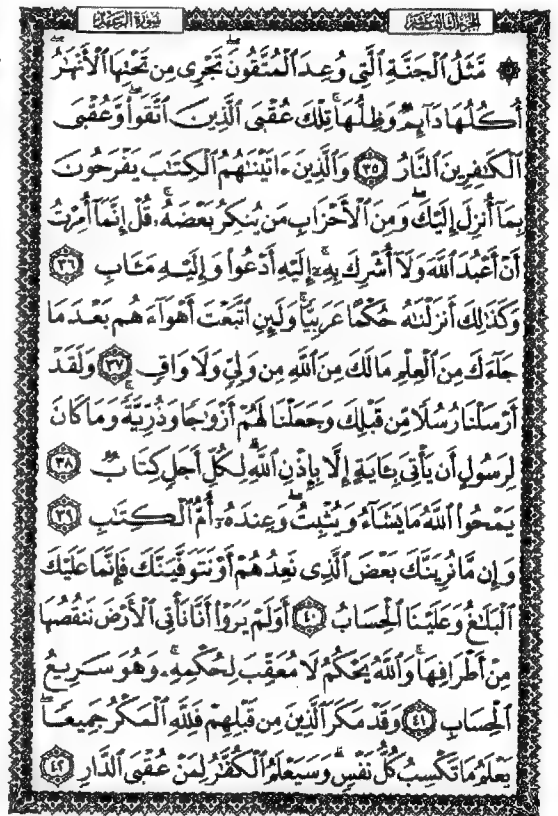 سُورَةُ الرَّعْدِ الجُزْءُ الثَّالِثُ عَشَرَ
۞ مَّثَلُ ٱلْجَنَّةِ ٱلَّتِى وُعِدَ ٱلْمُتَّقُونَۖ تَجْرِى مِن تَحْتِهَا ٱلْأَنْهَٰرُۖ
أُكُلُهَا دَآئِمٌ وَظِلُّهَاۚ تِلْكَ عُقْبَى ٱلَّذِينَ ٱتَّقَوا۟ۖ وَّعُقْبَى
ٱلْكَٰفِرِينَ ٱلنَّارُ ٣٥ وَٱلَّذِينَ ءَاتَيْنَٰهُمُ ٱلْكِتَٰبَ يَفْرَحُونَ
بِمَآ أُنزِلَ إِلَيْكَۖ وَمِنَ ٱلْأَحْزَابِ مَن يُنكِرُ بَعْضَهُۥۚ قُلْ إِنَّمَآ أُمِرْتُ
أَنْ أَعْبُدَ ٱللَّهَ وَلَآ أُشْرِكَ بِهِۦٓۚ إِلَيْهِ أَدْعُوا۟ وَإِلَيْهِ مَـَٔابِ ٣٦
وَكَذَٰلِكَ أَنزَلْنَٰهُ حُكْمًا عَرَبِيًّاۚ وَلَئِنِ ٱتَّبَعْتَ أَهْوَآءَهُم بَعْدَ مَا
جَآءَكَ مِنَ ٱلْعِلْمِ مَا لَكَ مِنَ ٱللَّهِ مِن وَلِىٍّ وَلَا وَاقٍ ٣٧ وَلَقَدْ
أَرْسَلْنَا رُسُلًا مِّن قَبْلِكَ وَجَعَلْنَا لَهُمْ أَزْوَٰجًا وَذُرِّيَّةًۚ وَمَا كَانَ
لِرَسُولٍ أَن يَأْتِىَ بِـَٔايَةٍ إِلَّا بِإِذْنِ ٱللَّهِۗ لِكُلِّ أَجَلٍ كِتَابٌ ٣٨
يَمْحُوا۟ ٱللَّهُ مَا يَشَآءُ وَيُثْبِتُۖ وَعِندَهُۥٓ أُمُّ ٱلْكِتَٰبِ ٣٩
وَإِن مَّا نُرِيَنَّكَ بَعْضَ ٱلَّذِى نَعِدُهُمْ أَوْ نَتَوَفَّيَنَّكَ فَإِنَّمَا عَلَيْكَ
ٱلْبَلَٰغُ وَعَلَيْنَا ٱلْحِسَابُ ٤٠ أَوَلَمْ يَرَوْا۟ أَنَّا نَأْتِى ٱلْأَرْضَ نَنقُصُهَا
مِنْ أَطْرَافِهَاۚ وَٱللَّهُ يَحْكُمُ لَا مُعَقِّبَ لِحُكْمِهِۦۚ وَهُوَ سَرِيعُ
ٱلْحِسَابِ ٤١ وَقَدْ مَكَرَ ٱلَّذِينَ مِن قَبْلِهِمْ فَلِلَّهِ ٱلْمَكْرُ جَمِيعًاۖ
يَعْلَمُ مَا تَكْسِبُ كُلُّ نَفْسٍۗ وَسَيَعْلَمُ ٱلْكُفَّٰرُ لِمَنْ عُقْبَى ٱلدَّارِ ٤٢